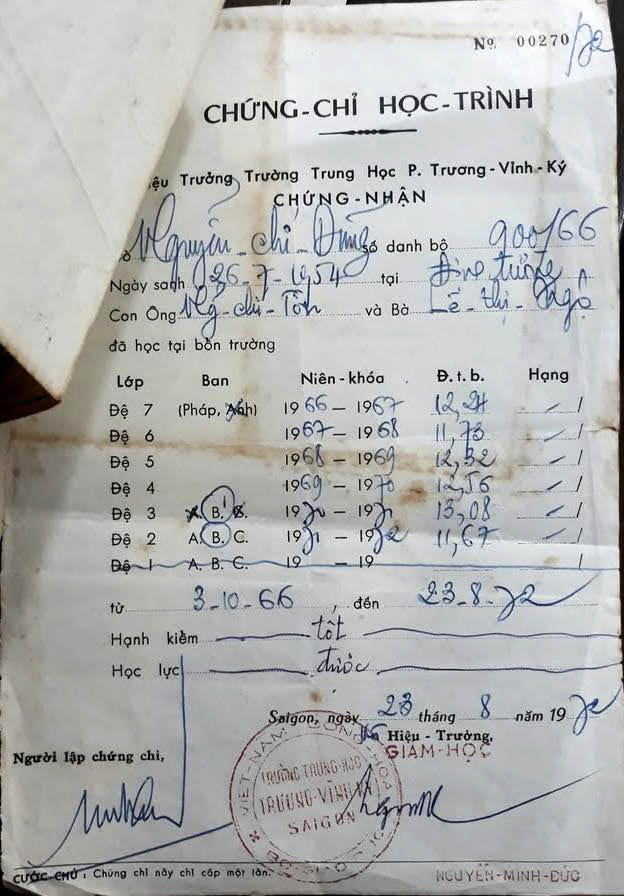 Nọ 00270/72
CHỨNG-CHỈ HỌC-TRÌNH
iệu Trưởng Trường Trung Học P. Trương-Vĩnh-Ký
CHỨNG-NHẬN
Nguyễn-chí-Dũng số danh bộ 900/66
Ngày sanh 26-7-1954 tại Định tường
Con Ông Ng-chí-Tôn và Bà Lê-thị-Ngộ
đã học tại bổn trường
Lớp Ban Niên-khóa Đ.t.b. Hạng
Đệ 7 (Pháp, Anh) 1966-1967 12,21 /
Đệ 6 1967-1968 11,73 /
Đệ 5 1968-1969 12,32 /
Đệ 4 1969-1970 12,56 /
Đệ 3 A. B. C. 1970-1971 13,08 /
Đệ 2 A. B. C. 1971-1972 11,67 /
Đệ 1 A. B. C. 19 - 19 /
từ 3-10-66, đến 23-8-72
Hạnh kiểm tốt
Học lực được
Saigon, ngày 23 tháng 8 năm 1972
Hiệu-Trưởng,
GIÁM-HỌC
Người lập chứng chỉ,
VIỆT-NAM CỘNG-HÒA
TRƯỜNG TRUNG-HỌC
TRƯƠNG-VĨNH-KÝ
SAIGON
CƯỚC CHÚ: Chứng chỉ này chỉ cấp một lần.
NGUYỄN-MINH-ĐỨC